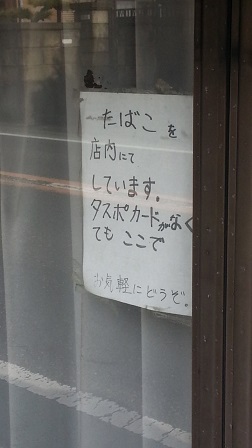 たばこを
店内にて
しています。
タスポカードがなく
てもここで
お気軽にどうぞ。